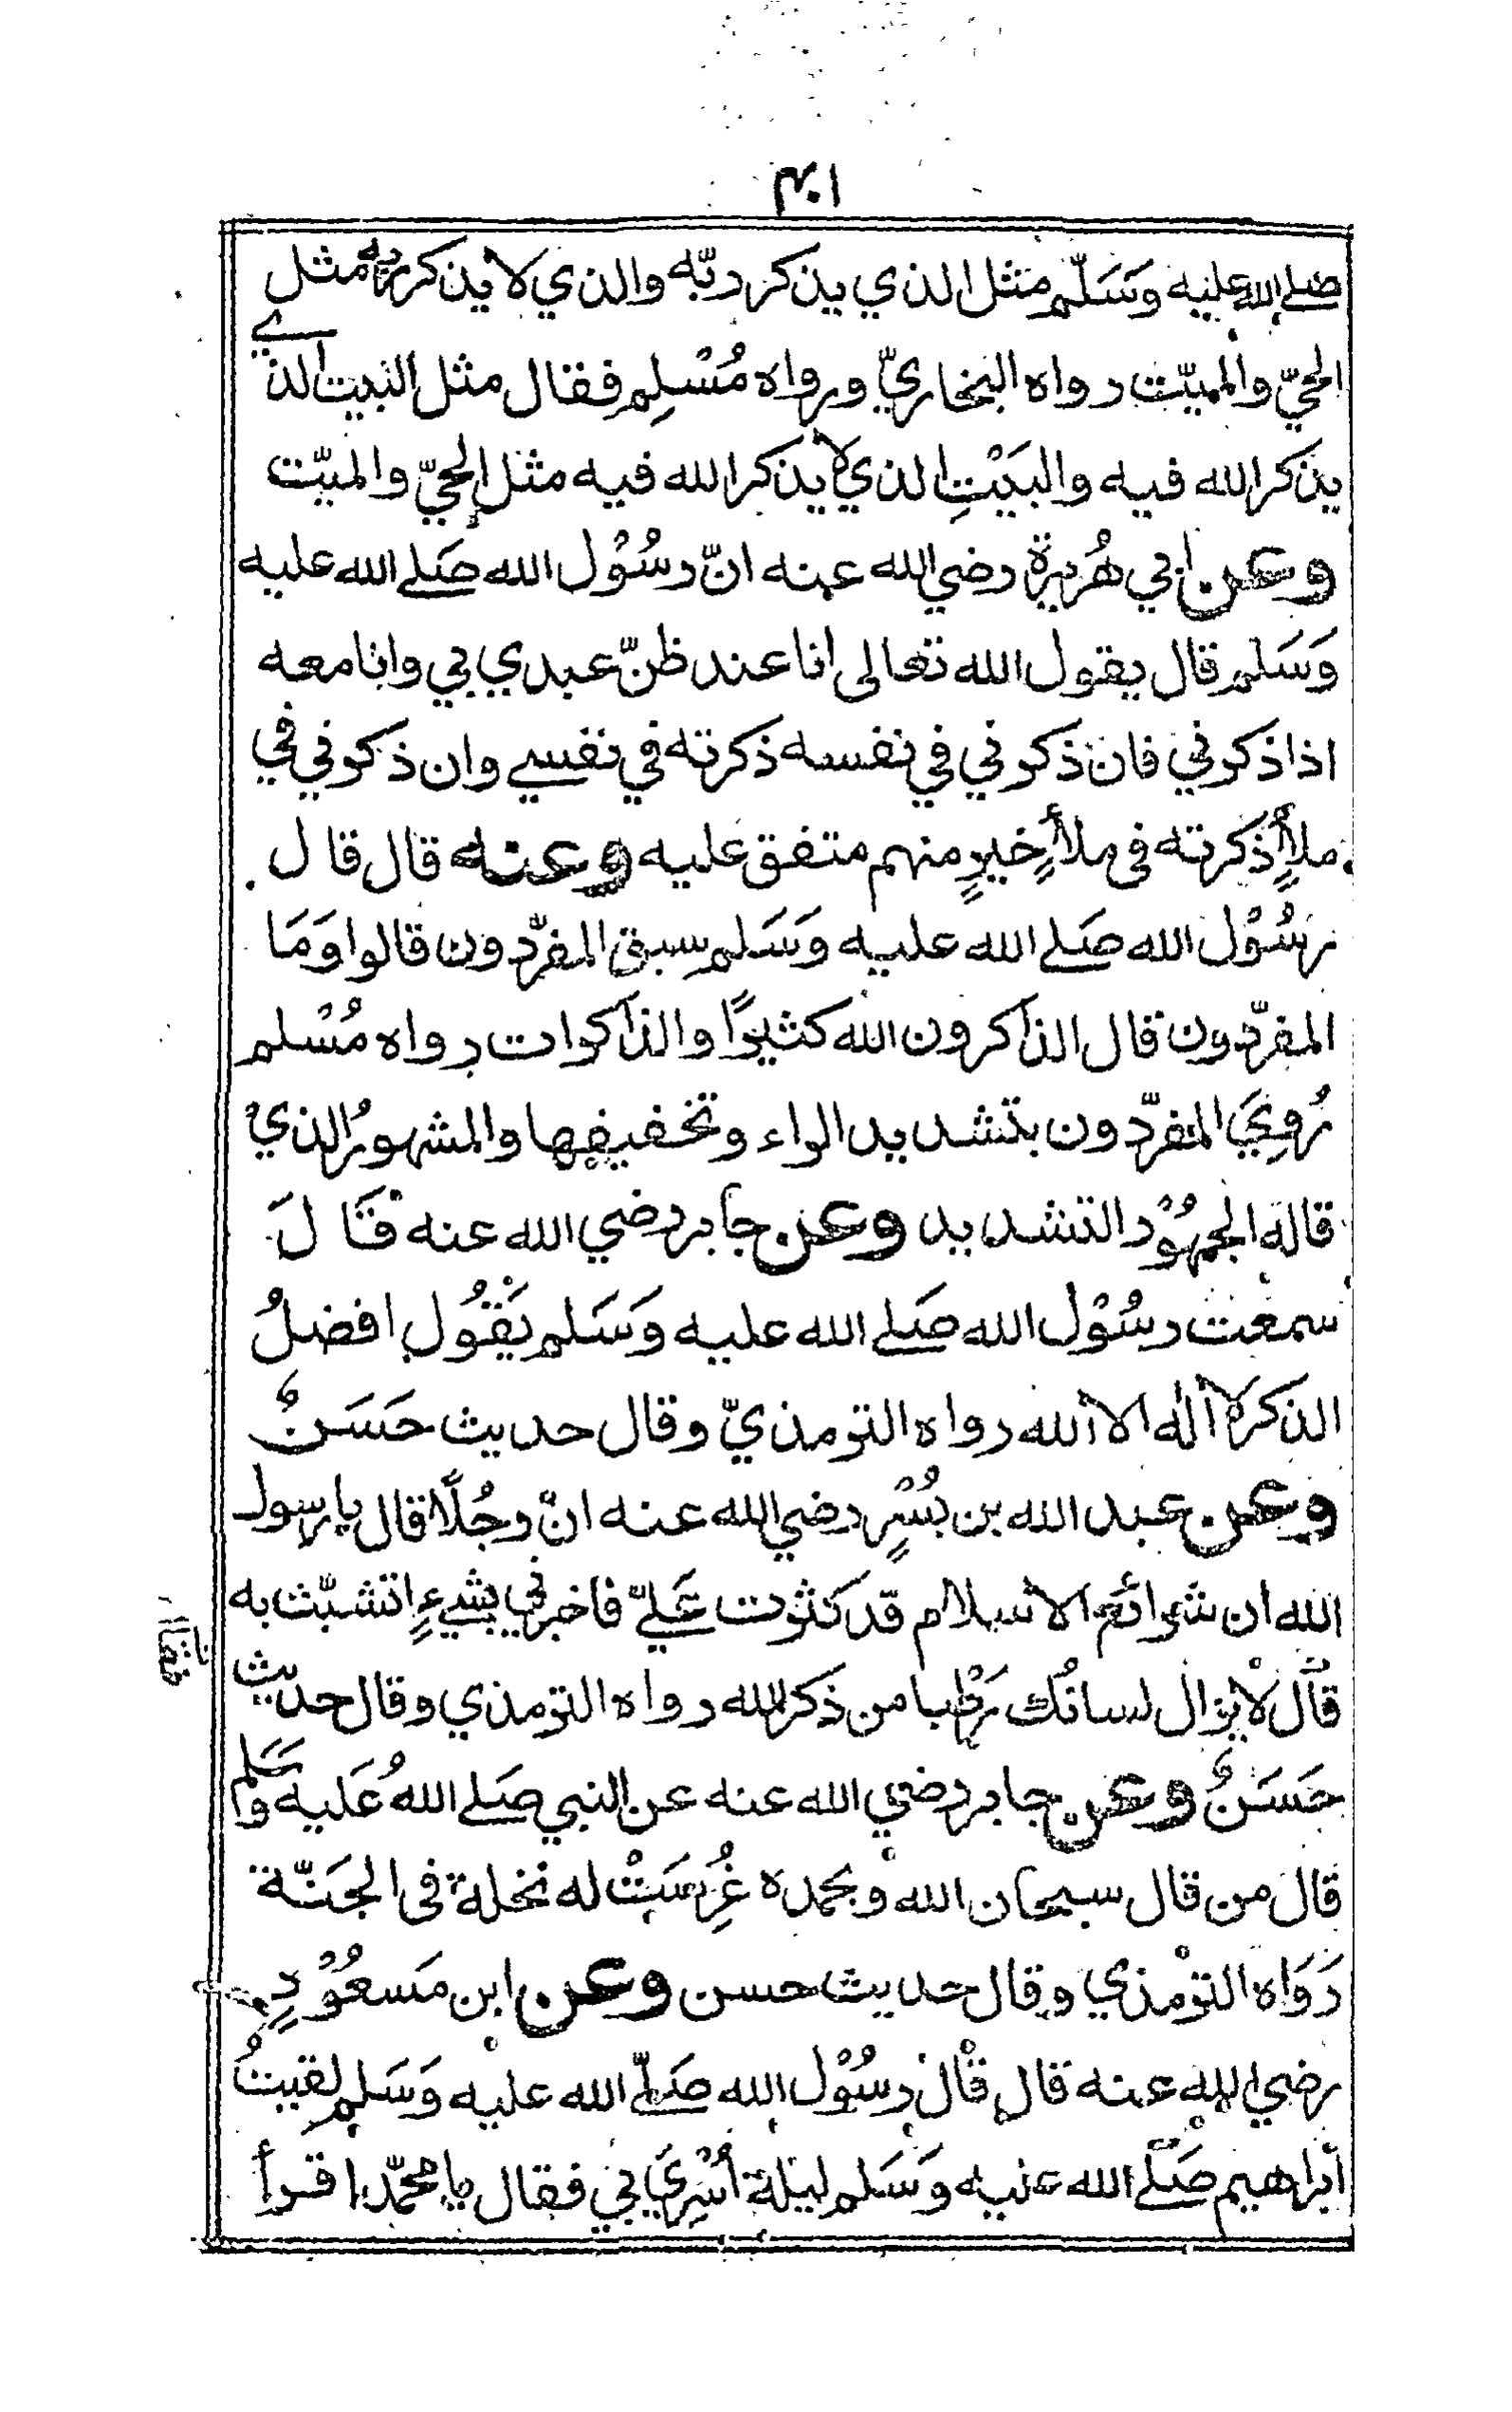 صلے الله عليه وَسَلّم مثل الذي يذكر ربّه والذي لا يذكر ربه مثل
الحيّ والميّت رواه البخاريّ ورواه مُسْلِم فقال مثل البيت الذي
يذكر الله فيه والبَيْتِ الذي لا يذكر الله فيه مثل الحيّ والميّت
وعن ابي هُريرة رضي الله عنه انّ رسُوْل الله صَلے الله عليه
وَسَلم قال يقول الله تعالى انا عند ظنّ عبدي بي وانا معه
اذا ذكرني فان ذكرني في نفسه ذكرته في نفسي وان ذكرني في
ملأٍ ذكرته فى ملأٍ خيرٍ منهم متفق عليه وعنه قال قال
رسُوْل الله صَلے الله عليه وَسَلم سبق المفرّدون قالوا وَمَا
المفرّدون قال الذاكرون الله كثيرًا والذاكرات رواه مُسْلم
رُوِيَ المفرّدون بتشديد الراء وتخفيفها والمشهورُ الذي
قاله الجمهُوْر التشديد وعن جابر رضي الله عنه قَالَ
سمعت رسُوْل الله صَلے الله عليه وَسَلم يَقُوْل افضلُ
الذكر لا أله الا ألله رواه الترمذيّ وقال حديث حَسَنٌ
وعن عبد الله بن بُسْرٍ رضي الله عنه انّ رجُلًا قال يا رسول
الله ان شرائع الاسلام قد كثرت عَليّ فاخبرني بشيءٍ اتشبّث به
قال لا يزال لسانُك رَطبا من ذكر الله رواه الترمذي وقال حديث
حَسَنٌ وعن جابر رضي الله عنه عن النبي صَلے اللهُ عَليه وَسَلم
قال من قال سبحان الله وبحمده غُرِسَتْ له نخلة فى الجَنّة
رَوَاه الترْمذي وقال حديث حسن وعن ابن مَسعُوْدٍ
رضي الله عنه قال قال رسُوْل الله صَلّے الله عليه وَسَلم لقيتُ
أبراهيم صَلّے الله عليه وَسَلم ليلة أُسْرِيَ بي فقال يا محمّد اقرأ